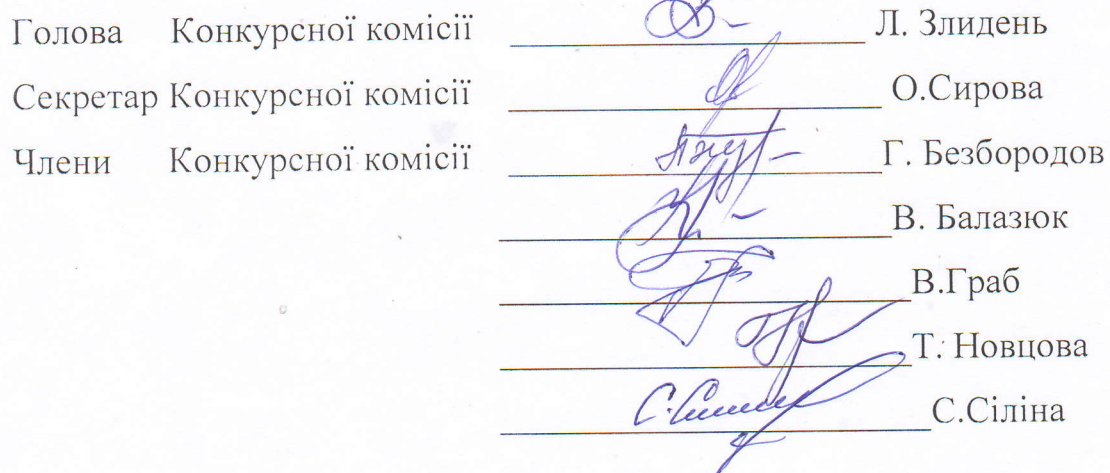 Голова Конкурсної комісії Л. Злидень
Секретар Конкурсної комісії О.Сирова
Члени Конкурсної комісії Г. Безбородов
В. Балазюк
В.Граб
Т. Новцова
С.Сіліна